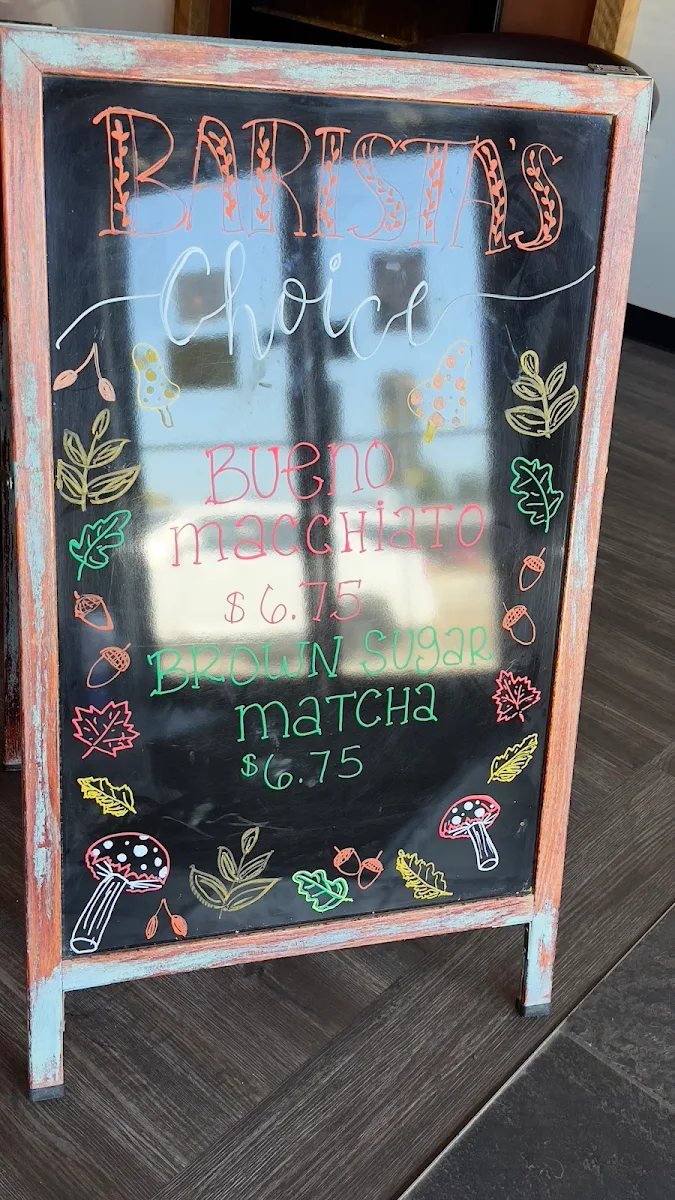 BARISTA'S
Choice
BUeNO
maccHiaTO
$6.75
BROWN SUgaR
maTCHa
$6.75